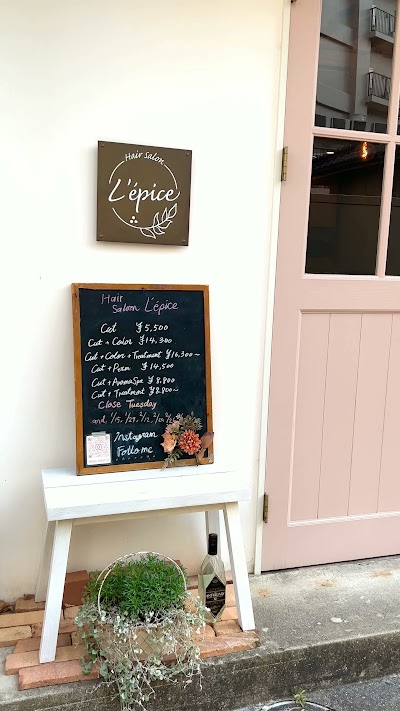 Hair Salon
L'épice
Hair
Salon L'épice
Cut ¥5,500
Cut + Color ¥14,300
Cut + Color + Treatment ¥16,300~
Cut + Perm ¥14,500
Cut + AromaSpa ¥8,800
Cut + Treatment ¥8,800~
Close Tuesday
and 1/15, 1/29, 2/12,
Instagram
Follow me